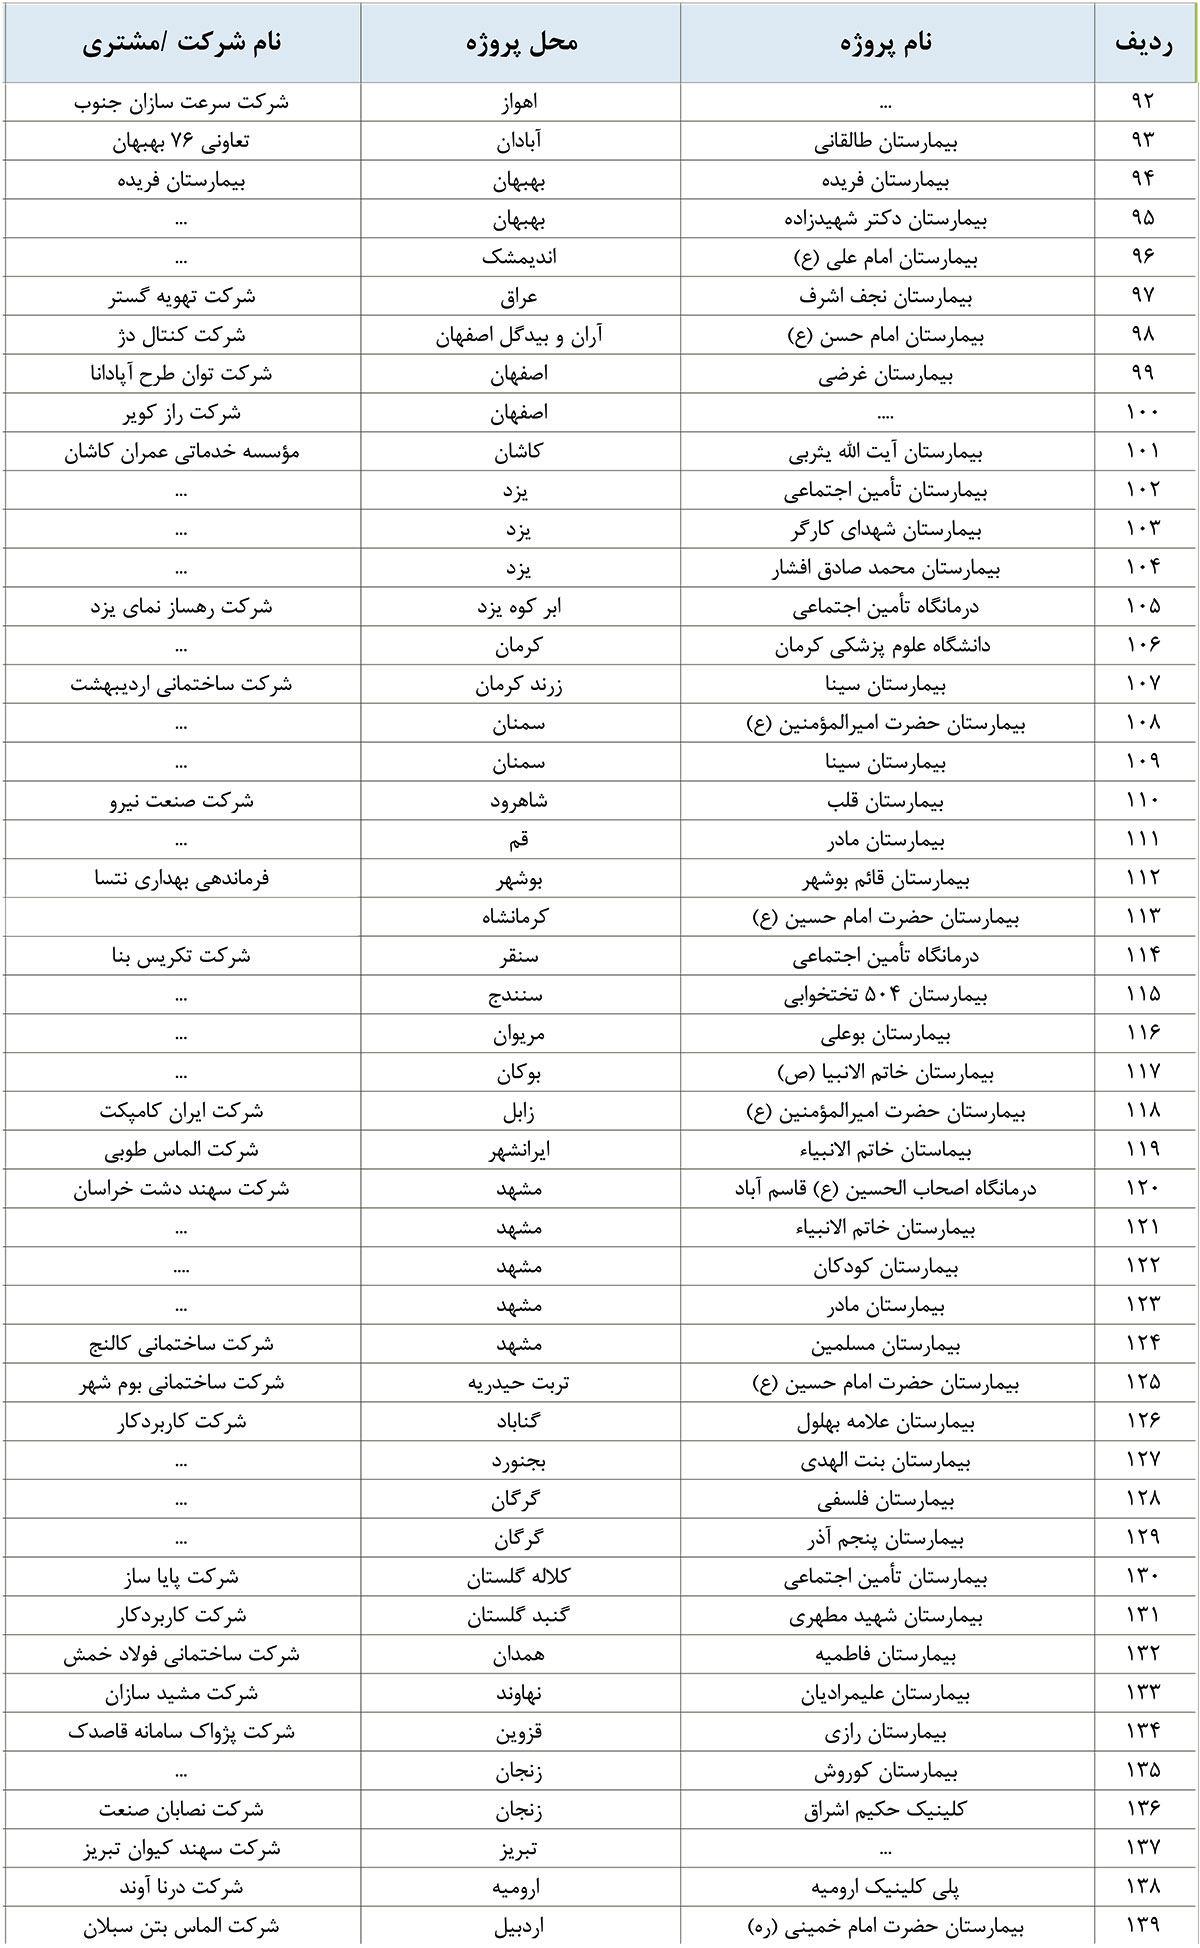 ردیف نام پروژه محل پروژه نام شرکت /مشتری
۹۲ ... اهواز شرکت سرعت سازان جنوب
۹۳ بیمارستان طالقانی آبادان تعاونی ۷۶ بهبهان
۹۴ بیمارستان فریده بهبهان بیمارستان فریده
۹۵ بیمارستان دکتر شهیدزاده بهبهان ...
۹۶ بیمارستان امام علی (ع) اندیمشک ...
۹۷ بیمارستان نجف اشرف عراق شرکت تهویه گستر
۹۸ بیمارستان امام حسن (ع) آران و بیدگل اصفهان شرکت کنتال دژ
۹۹ بیمارستان غرضی اصفهان شرکت توان طرح آپادانا
۱۰۰ .... اصفهان شرکت راز کویر
۱۰۱ بیمارستان آیت الله یثربی کاشان مؤسسه خدماتی عمران کاشان
۱۰۲ بیمارستان تأمین اجتماعی یزد ...
۱۰۳ بیمارستان شهدای کارگر یزد ...
۱۰۴ بیمارستان محمد صادق افشار یزد ...
۱۰۵ درمانگاه تأمین اجتماعی ابر کوه یزد شرکت رهساز نمای یزد
۱۰۶ دانشگاه علوم پزشکی کرمان کرمان ...
۱۰۷ بیمارستان سینا زرند کرمان شرکت ساختمانی اردیبهشت
۱۰۸ بیمارستان حضرت امیرالمؤمنین (ع) سمنان ...
۱۰۹ بیمارستان سینا سمنان ...
۱۱۰ بیمارستان قلب شاهرود شرکت صنعت نیرو
۱۱۱ بیمارستان مادر قم ...
۱۱۲ بیمارستان قائم بوشهر بوشهر فرماندهی بهداری نتسا
۱۱۳ بیمارستان حضرت امام حسین (ع) کرمانشاه
۱۱۴ درمانگاه تأمین اجتماعی سنقر شرکت تکریس بنا
۱۱۵ بیمارستان ۵۰۴ تختخوابی سنندج ...
۱۱۶ بیمارستان بوعلی مریوان ...
۱۱۷ بیمارستان خاتم الانبیا (ص) بوکان ...
۱۱۸ بیمارستان حضرت امیرالمؤمنین (ع) زابل شرکت ایران کامپکت
۱۱۹ بیماستان خاتم الانبیاء ایرانشهر شرکت الماس طوبی
۱۲۰ درمانگاه اصحاب الحسین (ع) قاسم آباد مشهد شرکت سهند دشت خراسان
۱۲۱ بیمارستان خاتم الانبیاء مشهد ...
۱۲۲ بیمارستان کودکان مشهد ....
۱۲۳ بیمارستان مادر مشهد ...
۱۲۴ بیمارستان مسلمین مشهد شرکت ساختمانی کالنج
۱۲۵ بیمارستان حضرت امام حسین (ع) تربت حیدریه شرکت ساختمانی بوم شهر
۱۲۶ بیمارستان علامه بهلول گناباد شرکت کاربردکار
۱۲۷ بیمارستان بنت الهدی بجنورد ...
۱۲۸ بیمارستان فلسفی گرگان ...
۱۲۹ بیمارستان پنجم آذر گرگان ...
۱۳۰ بیمارستان تأمین اجتماعی کلاله گلستان شرکت پایا ساز
۱۳۱ بیمارستان شهید مطهری گنبد گلستان شرکت کاربردکار
۱۳۲ بیمارستان فاطمیه همدان شرکت ساختمانی فولاد خمش
۱۳۳ بیمارستان علیمرادیان نهاوند شرکت مشید سازان
۱۳۴ بیمارستان رازی قزوین شرکت پژواک سامانه قاصدک
۱۳۵ بیمارستان کوروش زنجان ...
۱۳۶ کلینیک حکیم اشراق زنجان شرکت نصابان صنعت
۱۳۷ ... تبریز شرکت سهند کیوان تبریز
۱۳۸ پلی کلینیک ارومیه ارومیه شرکت درنا آوند
۱۳۹ بیمارستان حضرت امام خمینی (ره) اردبیل شرکت الماس بتن سبلان